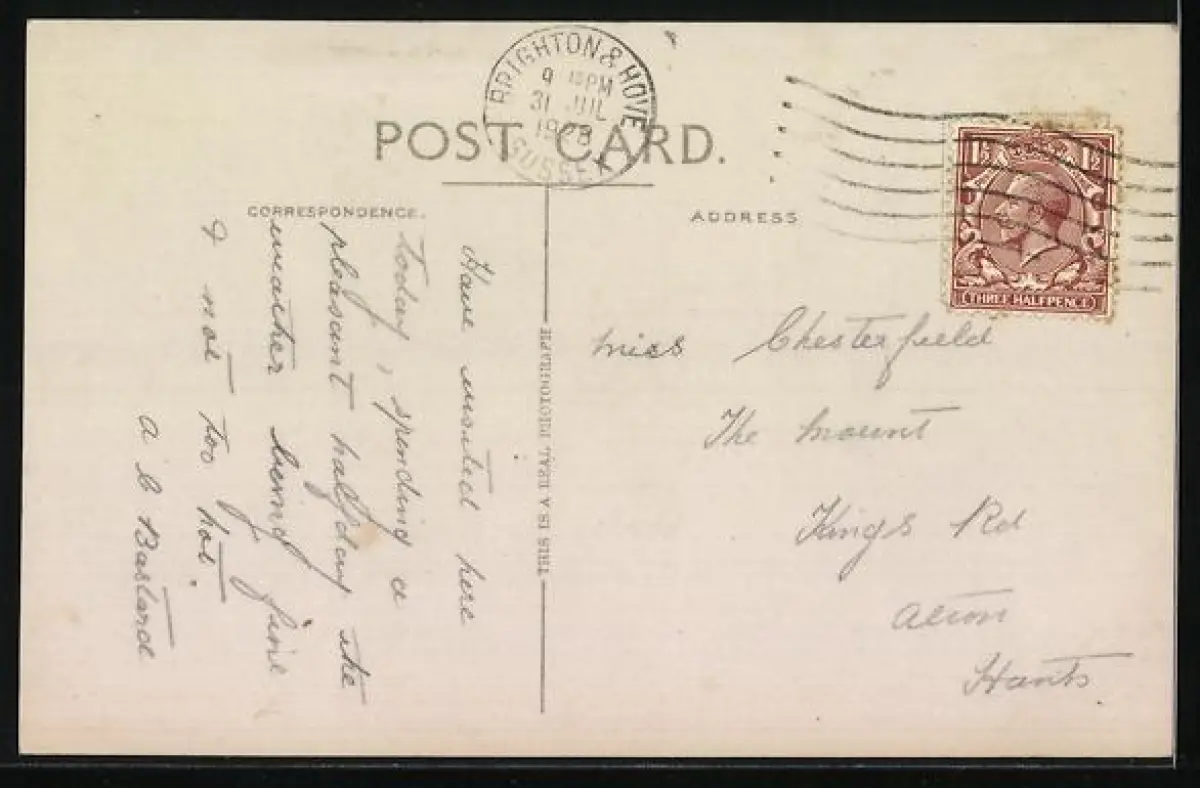 POST CARD.
BRIGHTON & HOVE
9 15 PM
31 JUL
SUSSEX
CORRESPONDENCE.
ADDRESS
1½ 1½
THREE HALFPENCE
THIS IS A REAL PHOTOGRAPH
Have visited here
today, spending a
pleasant halfday the
weather being fine
& not too hot.
a b Bastard
Miss Chesterfield
The Mount
Kings Rd
Alton
Hants.